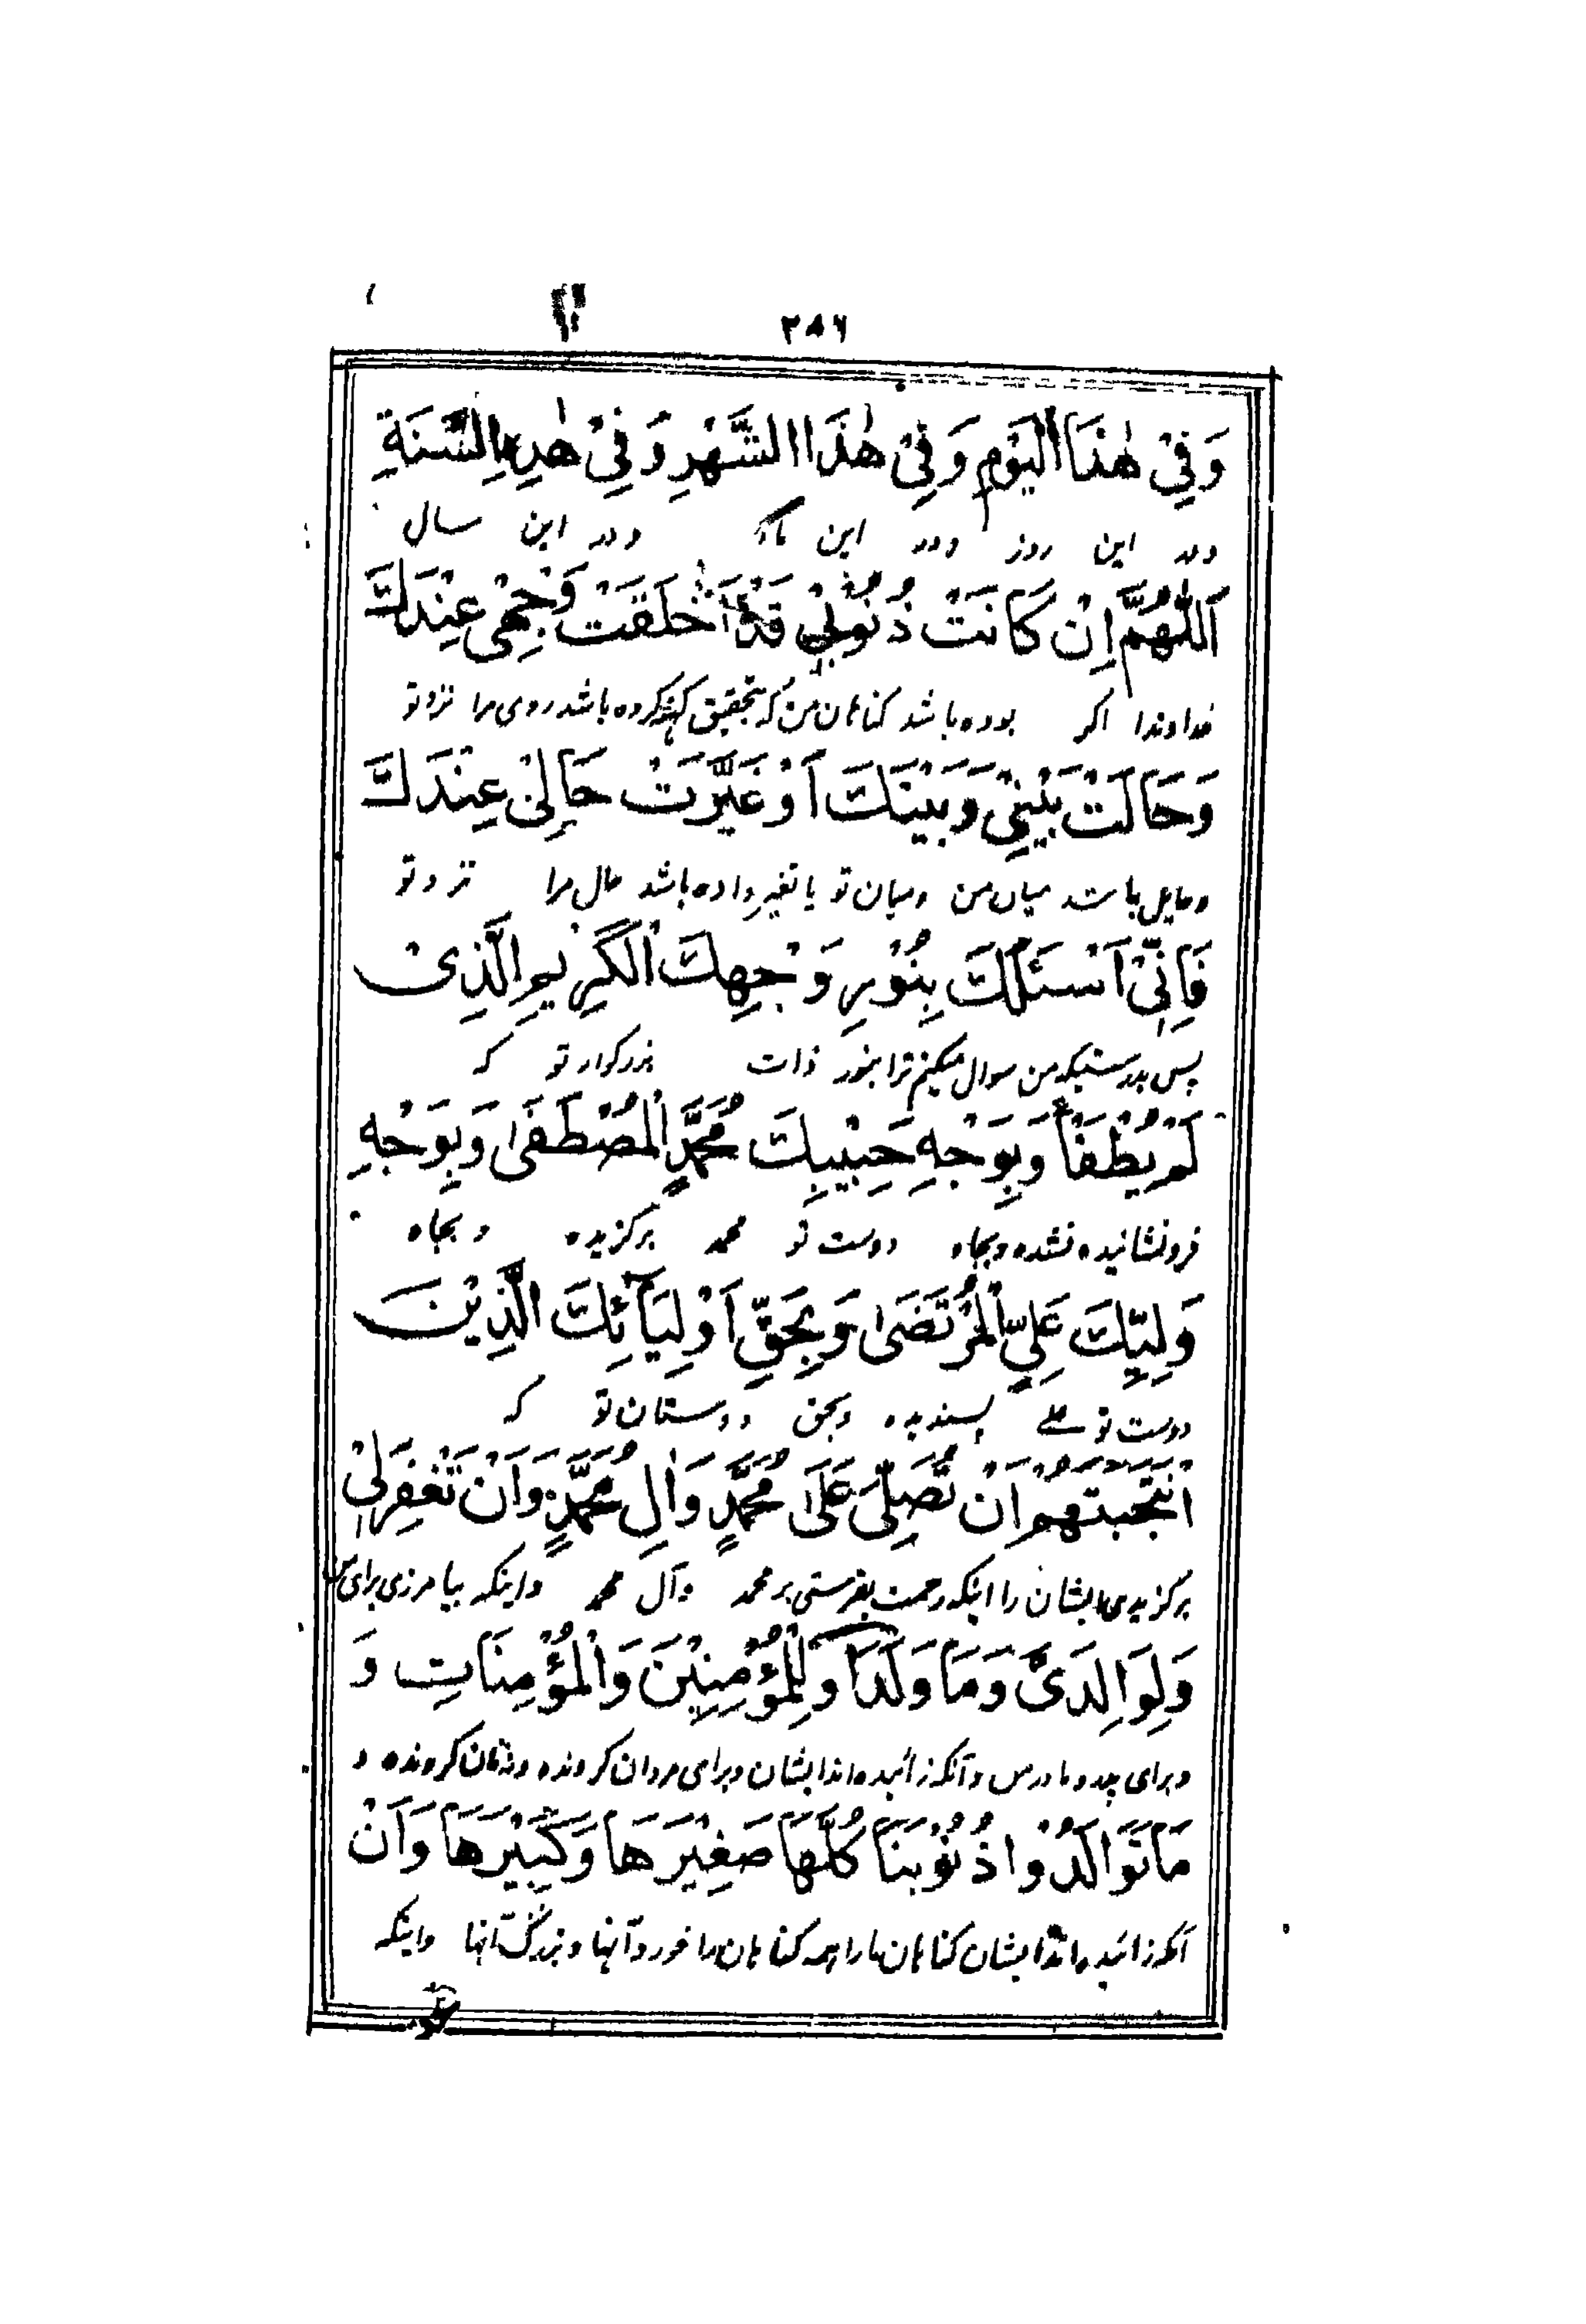 ٢٨٦
وَفِیْ هٰذَا الْیَوْمِ وَفِیْ هٰذَا الشَّهْرِ وَفِیْ هٰذِهِ السَّنَةِ
ودر این روز ودر این ماه ودر این سال
اَللّٰهُمَّ اِنْ کَانَتْ ذُنُوْبِیْ قَدْ اَخْلَقَتْ وَجْهِیْ عِنْدَكَ
خداوندا اکر بوده باشد کناهان من که بتحقیق کهنه کرده باشد روی مرا نزد تو
وَحَالَتْ بَیْنِیْ وَبَیْنَكَ اَوْ غَیَّرَتْ حَالِیْ عِنْدَكَ
وحایل باشد میان من ومیان تو یا تغیر داده باشد حال مرا نزد تو
فَاِنِّیْ اَسْئَلُكَ بِنُوْرِ وَجْهِكَ الْکَرِیْمِ الَّذِیْ
پس بدرستیکه من سوال میکنم ترا بنور ذات بزرکوار تو که
لَمْ یُطْفَأْ وَبِوَجْهِ حَبِیْبِكَ مُحَمَّدٍ الْمُصْطَفَی وَبِوَجْهِ
فرو نشانیده نشده وبجاه دوست تو محمد برکزیده وبجاه
وَلِیِّكَ عَلِیٍّ الْمُرْتَضَی وَبِحَقِّ اَوْلِیَآئِكَ الَّذِیْنَ
دوست تو علی پسندیده وبحق دوستان تو که
انْتَجَبْتَهُمْ اَنْ تُصَلِّیَ عَلَی مُحَمَّدٍ وَاٰلِ مُحَمَّدٍ وَاَنْ تَغْفِرَلِیْ
برکزیدی ایشان را اینکه رحمت بفرستی بر محمد وآل محمد واینکه بیامرزی برای من
وَلِوَالِدَیَّ وَمَا وَلَدَا وَلِلْمُؤْمِنِیْنَ وَالْمُؤْمِنَاتِ وَ
وبرای پدر ومادرم وآنکه زائیده اند ایشان وبرای مردان کرونده وزنان کرونده و
مَا تَوَالَدُوْا ذُنُوْبَنَا کُلَّهَا صَغِیْرَهَا وَکَبِیْرَهَا وَاَنْ
آنکه زائیده اند ایشان کناهان ما را همه کناهان را خورد آنها وبزرک آنها واینکه